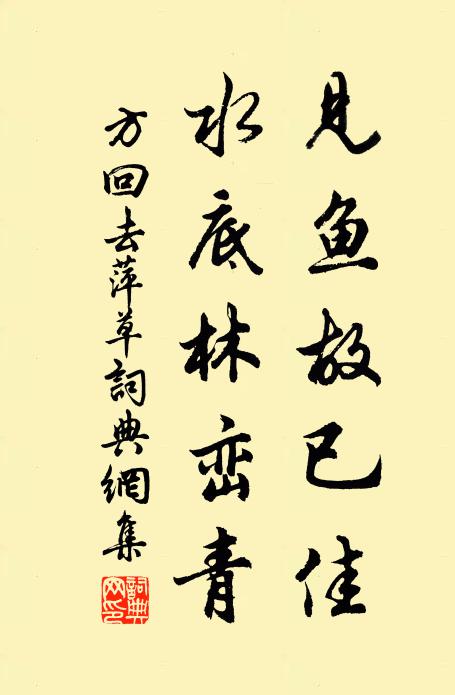 见鱼故已佳
水底林峦青
方回去萍草詞典網集
詞典網印